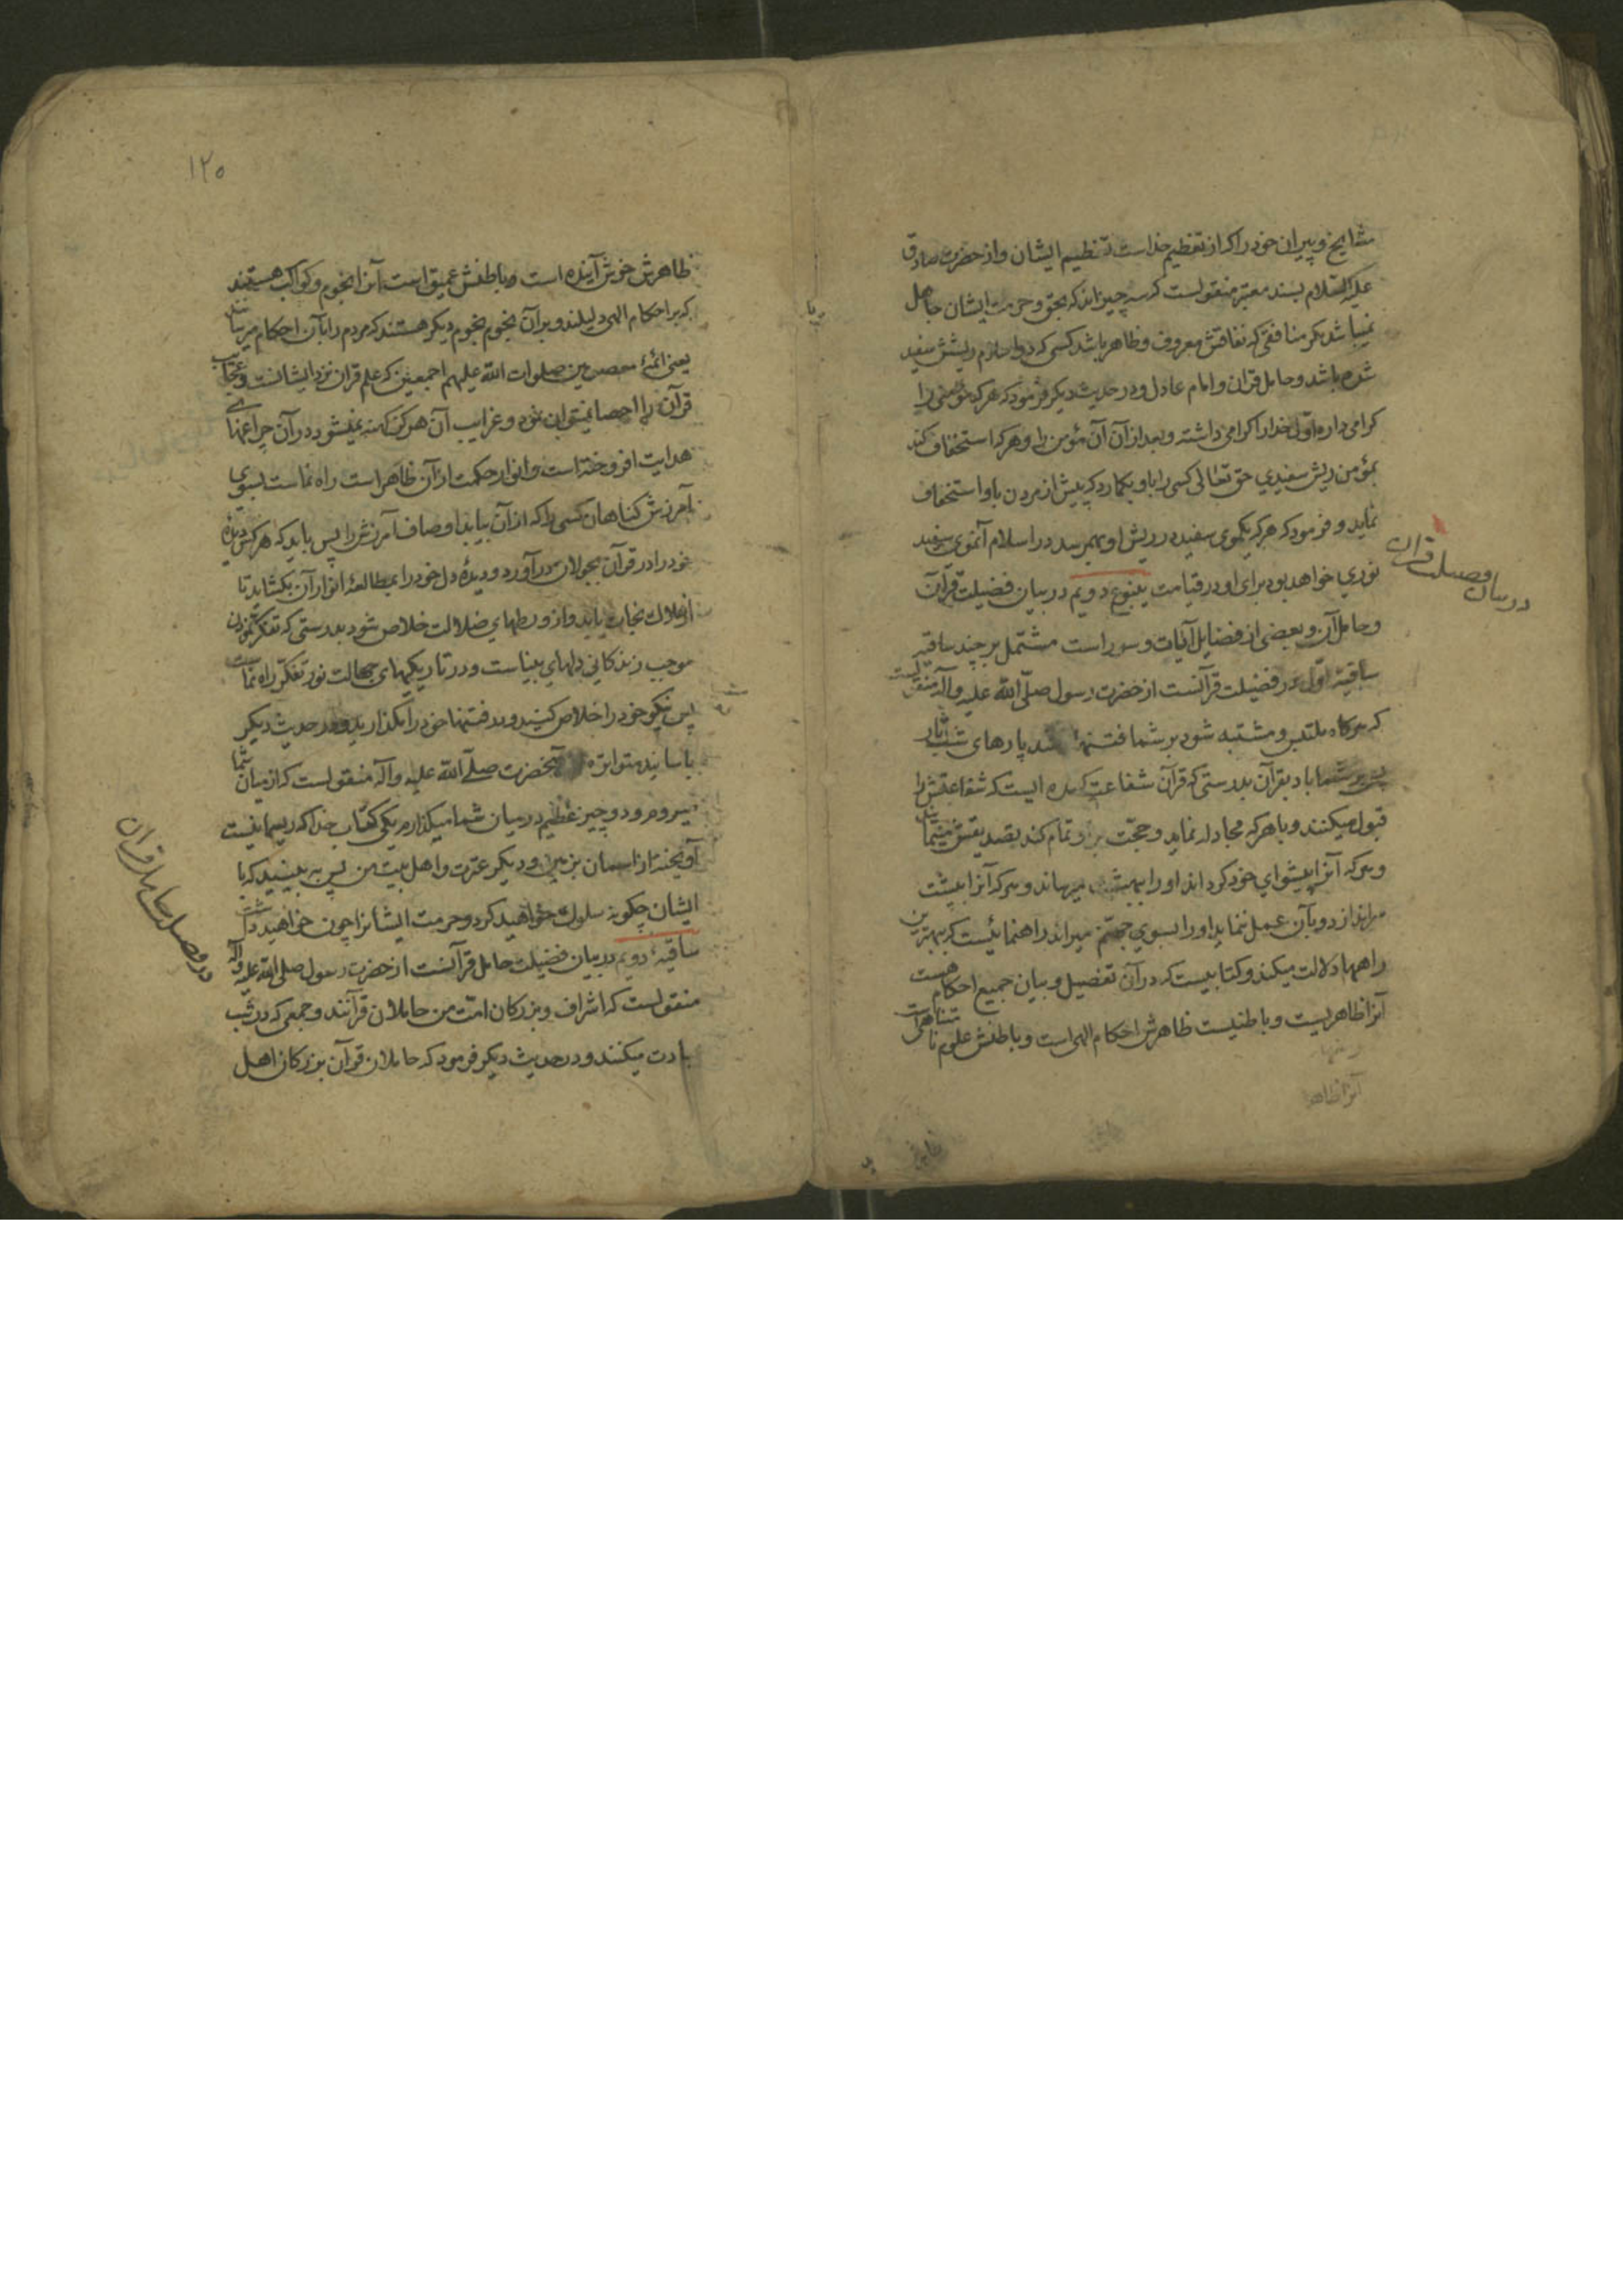 مشایخ و پیران خود را که از تعظیم خداست تعظیم ایشان و از حضرت صادق
علیه السلام بسند معتبر منقولست که سه چیزاند که بحق و حرمت ایشان جاهل
نمیباشد مکر منافقی که نفاقش معروف و ظاهر باشد کسی که در اسلام ریشش سفید
شده باشد و حامل قران و امام عادل و در حدیث دیکر فرمود که هر که مؤمنی را
کرامی دارد اول خدا را کرامی داشته و بعد از آن آن مؤمن را و هر که استخفاف کند
بمؤمن ریش سفیدی حق تعالی کسی را باو بکمارد که پیش از مردن باو استخفاف
نماید و فرمود که هر که یکموی سفید در ریش او بهمرسد در اسلام آنموی سفید
نوری خواهد بود برای او در قیامت ینبوع دویم در بیان فضیلت قرآن
در بیان فضیلت قران
و حامل آن و بعضی از فضایل آیات و سور است مشتمل بر چند ساقیه
ساقیهٔ اول در فضیلت قرآنست از حضرت رسول صلّی الله علیه و آله منقولست
که هرکاه ملتبس و مشتبه شود بر شما فتنها مانند پارهای شب تار
پس بر شما باد بقرآن بدرستی که قرآن شفاعت کننده ایست که شفاعتش را
قبول میکنند و با هر که مجادله نماید و حجّت بر او تمام کند تصدیقش مینمایند
و هر که آنرا پیشوای خود کرداند او را ببهشت میرساند و هر که آنرا بپشت
سر اندازد و بآن عمل ننماید او را بسوی جهنّم میراند راهنمائیست که بهترین
راهها دلالت میکند و کتابیست که در آن تفصیل و بیان جمیع احکام هست
آنرا ظاهریست و باطنیست ظاهرش احکام الهی است و باطنش علوم نامتناهی است
آنرا ظاهر
۱۲۵
ظاهرش خوش آینده است و باطنش عمیق است آنرا نجوم و کواکب هستند
که بر احکام الهی دلیلند و بر آن نجوم نجوم دیکر هستند که مردم را بآن احکام میرسانند
یعنی ائمهٔ معصومین صلوات الله علیهم اجمعین که علم قران نزد ایشانست و عجایب
قرآن را احصا نمیتوان نمود و غرایب آن هرکز کهنه نمیشود در آن چراغهای
هدایت افروخته است و انوار حکمت از آن ظاهر است راه نماست بسوی
آمرزش کناهان کسی را که از آن بیابد اوصاف آمرزش را پس باید که هر کس دیدهٔ
خود را در قرآن بجولان درآورد و دیدهٔ دل خود را بمطالعهٔ انوار آن بکشاید تا
از هلاک نجات یابد و از ورطهای ضلالت خلاص شود بدرستی که تفکر نمودن
موجب زندکانی دلهای بیناست و در تاریکیهای جهالت نور تفکر راه نماست
پس نیکو خود را خلاص کنید و در فتنها خود را مکذارید و در حدیث دیکر
باسانید متواتره از آنحضرت صلّی الله علیه و آله منقولست که از میان شما
میروم و دو چیز عظیم در میان شما میکذارم یکی کتاب خدا که ریسمانیست
آویخته از اسمان بزمین و دیکر عترت و اهل بیت من پس به بینید که با
ایشان چکونه سلوک خواهید کرد و حرمت ایشانرا چون خواهید داشت
ساقیهٔ دویم در بیان فضیلت حامل قرآنست از حضرت رسول صلی الله علیه و آله
در فضیلت حامل قران
منقولست که اشراف و بزرکان امّت من حاملان قرآنند و جمعی که در شب
عبادت میکنند و در حدیث دیکر فرمود که حاملان قرآن بزرکان اهل